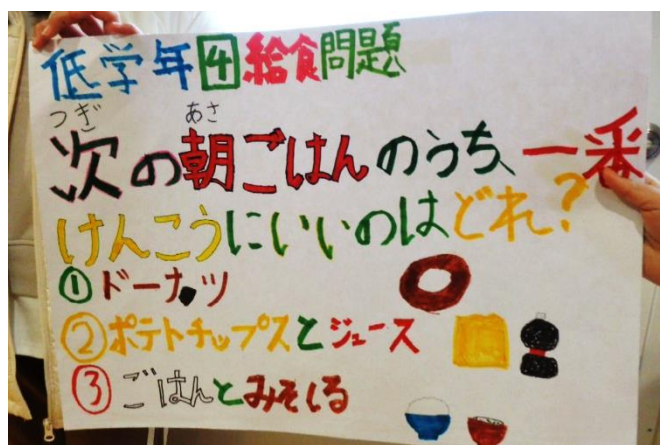 低学年4給食問題
つぎ あさ
次の朝ごはんのうち、一番
けんこうにいいのはどれ？
①ドーナッツ
②ポテトチップスとジュース
③ごはんとみそしる